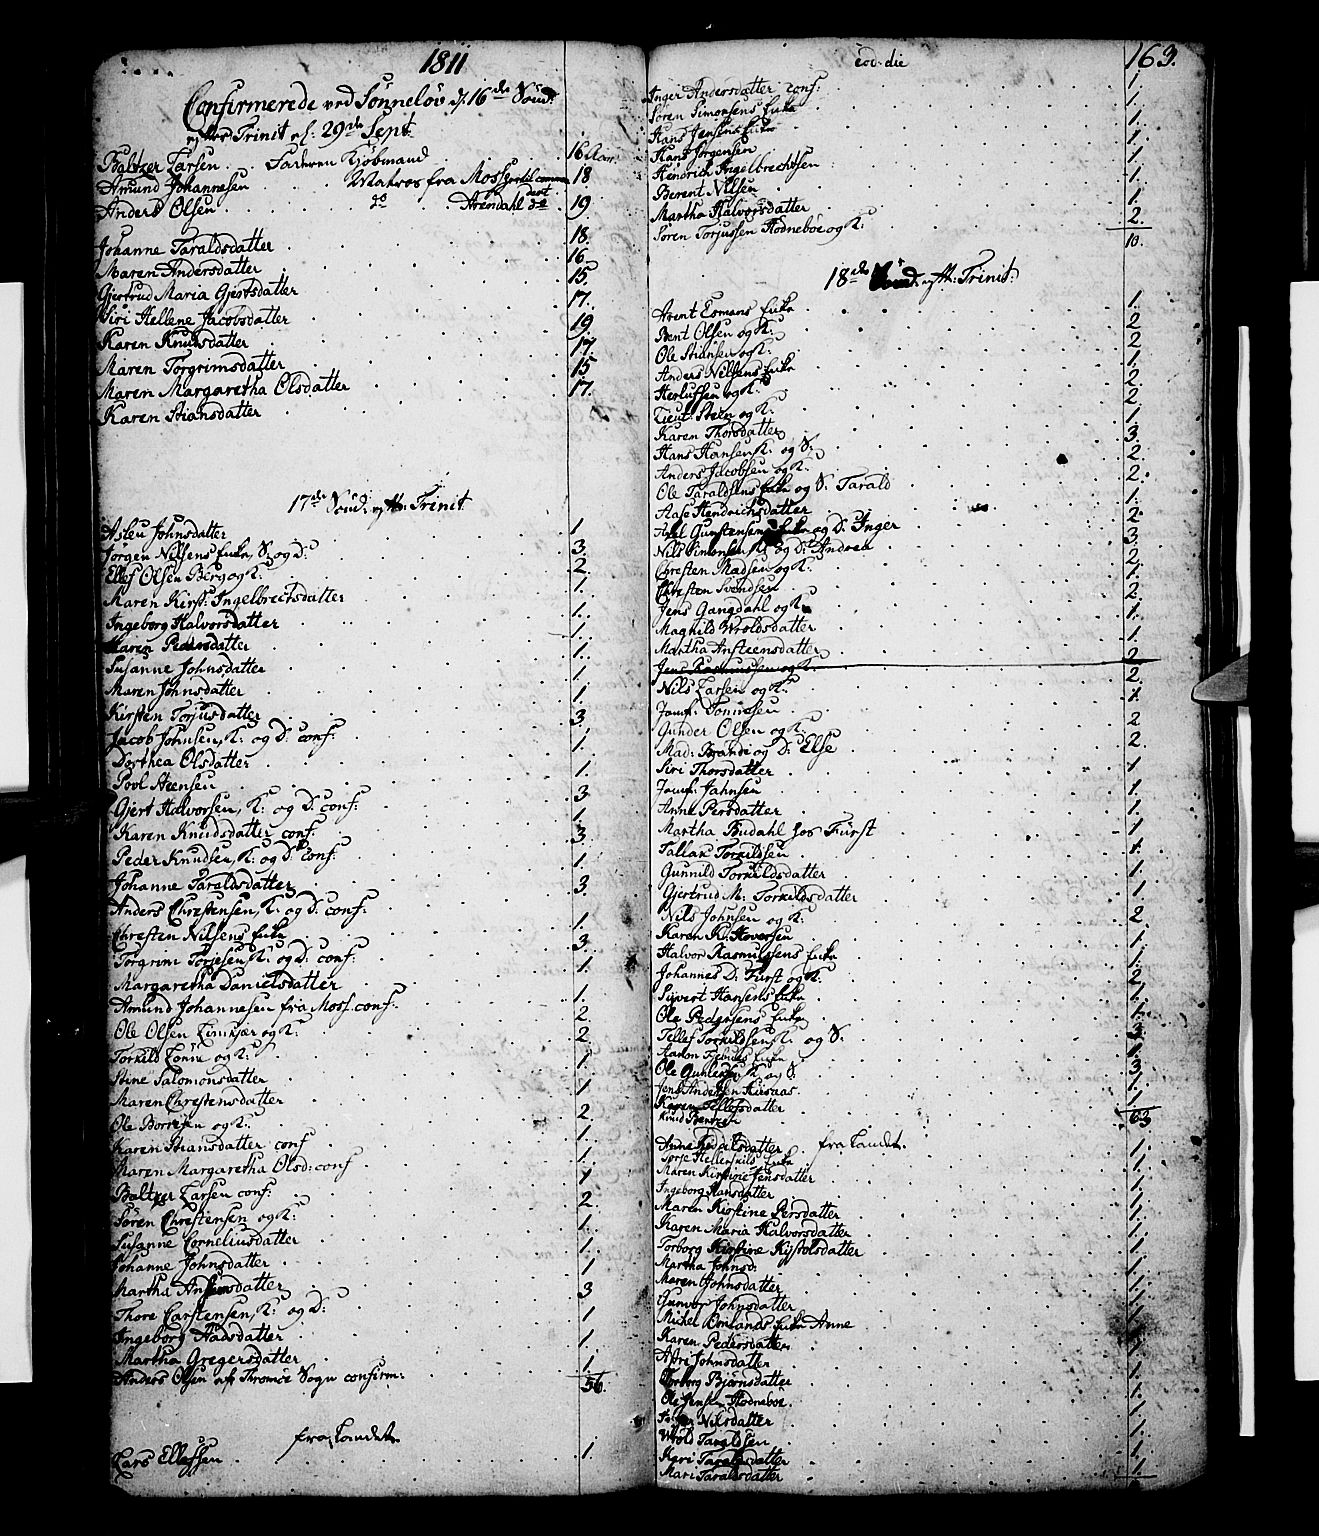 1811
Confirmerede ved Sønneløv d. 16de Sønd:
efter Trinit el: 29de Sept
Baltzer Larsen Faderen Kjøbmand 16 Aar
Amund Johannesen Matros fra Moss 18
Anders Olsen do Arendahl do 19
Johanne Taraldsdatter 18.
Maren Andersdatter 16
Gjertrud Maria Gjertsdatter 15
Siri Hellene Jacobsdatter 17.
Karen Knudsdatter 19
Maren Torgrimsdatter 17.
Maren Margaretha Olsdatter 15
Karen Stiansdatter 17.
17de Sønd: eft: Trinit
Aslev Johnsdatter 1
Jørgen Nilsens Enke, S: og D: 3.
Ellef Olsen Berg og K: 2.
Maren Kirst: Ingelbrectsdatter 1.
Ingeborg Halvorsdatter 1.
Maren Pedersdatter 1.
Susanne Johnsdatter 1
Maren Johnsdatter 1
Kirsten Torjusdatter 1
Jacob Johnsen, K: og D: conf: 3.
Dorthea Olsdatter 1
Povl Steensen 1.
Gjert Halvorsen, K: og D: conf: 3
Karen Knudsdatter conf. 1.
Peder Knudsen, K: og D: conf: 3.
Johanne Taraldsdatter 1.
Anders Chrestensen, K: og D: conf: 3.
Chresten Nilsens Enke 1.
Torgrim Torjesen, K: og D: conf: 3.
Margaretha Danielsdatter 1
Amund Johannesen fra Moss. conf: 1.
Ole Olsen Limkjær og K: 2.
Torkild Lønne og K: 2
Stine Salomonsdatter 1
Maren Chrestensdatter 1
Ole Borresen og K: 2.
Karen Stiansdatter conf 1
Maren Margaretha Olsd: conf 1.
Baltzer Larsen conf: 1
Søren Chrestensen og K: 2
Susanne Corneliusdatter 1.
Johanne Johnsdatter 1.
Martha Andersdatter 1
Thore Carstensen, K: og D: 3
Ingeborg Aadsdatter 1
Martha Gregersdatter 1
Anders Olsen af Thromøe Sogn confirm: 1
56.
fra Landet
Lars Ellefsen 1.
eod: die 163.
Inger Andersdatter conf: 1
Søren Simonsens Enke 1.
Hans Jensens Enke 1.
Hans Jørgensen 1
Hendrich Ingelbrechtsen 1
Berent Nilsen 1
Martha Halvorsdatter 1.
Søren Torjussen Hodnebøe og K: 2.
10.
18de Sønd. eft: Trinit:
Arent Esmans Enke 1.
Bent Olsen og K: 2
Ole Stiansen og K: 2
Anders Nilsens Enke 1.
Herlufsen og K: 2
Lieut: Steen og K: 2
Karen Thorsdatter 1
Hans Hansen, K: og S: 3.
Anders Jacobsen og K: 2
Ole Taraldsens Enke og S: Tarald 2
Aase Hendrichsdatter 1.
Axel Gunstensens Enke og D: Inger 2
Nils Simonsen K: og D: Andrea 3.
Chresten Madsen og K: 2
Chresten Svendsen 1
Jens Gangdahl og K: 2
Magnild Wroldsdatter 1
Martha Ansteensdatter 1
Jens Rasmussen og K: 2
Nils Larsen og K: 2
Jomf: Tonnesen 1
Gunder Olsen og K: 2
Mad: Brandt og D: Else 2.
Siri Thorsdatter 1
Jomf: Jahnsen 1
Anne Persdatter 1.
Martha Budahl hos Fürst 1
Tallak Torkildsen 1
Gunnild Torkildsdatter 1
Gjertrud M: Torkildsdatter 1
Nils Johnsen og K: 2
Karen K: Hoversen 1
Halvor Rasmussens Enke 1
Johannes D: Fürst og K: 2
Sivert Hansens Enke 1
Ole Pedersens Enke 1
Tellef Torkildsen, K: og S: 3
Aanon Enke 1
Ole Gundersen, K: og S: 3.
Jens Andersen 1.
Karen Tellefsdatter 1
Knud Berntsen 1
63
fra Landet.
Anne datter 1
Terje Hellerskilds Enke 1.
Maren Kirstine Jensdatter 1.
Ingeborg Hansdatter 1
Maren Kirstine Persdatter 1
Karen Maria Halvorsdatter 1
Torborg Kirstine Kystolsdatter 1
Martha Johnsd: 1.
Maren Johnsdatter 1.
Gunvor Johnsdatter 1.
Michel Omlands Enke Anne 1
Karen Pedersdatter 1
Johnsdatter 1.
Torborg Bjørnsdatter 1.
Ole Jensen Hodnebøe. 1.
Nilsdatter 1.
Wrold Taraldsen 1.
Kari Taraldsdatter 1
Mari Taraldsdatter 1.